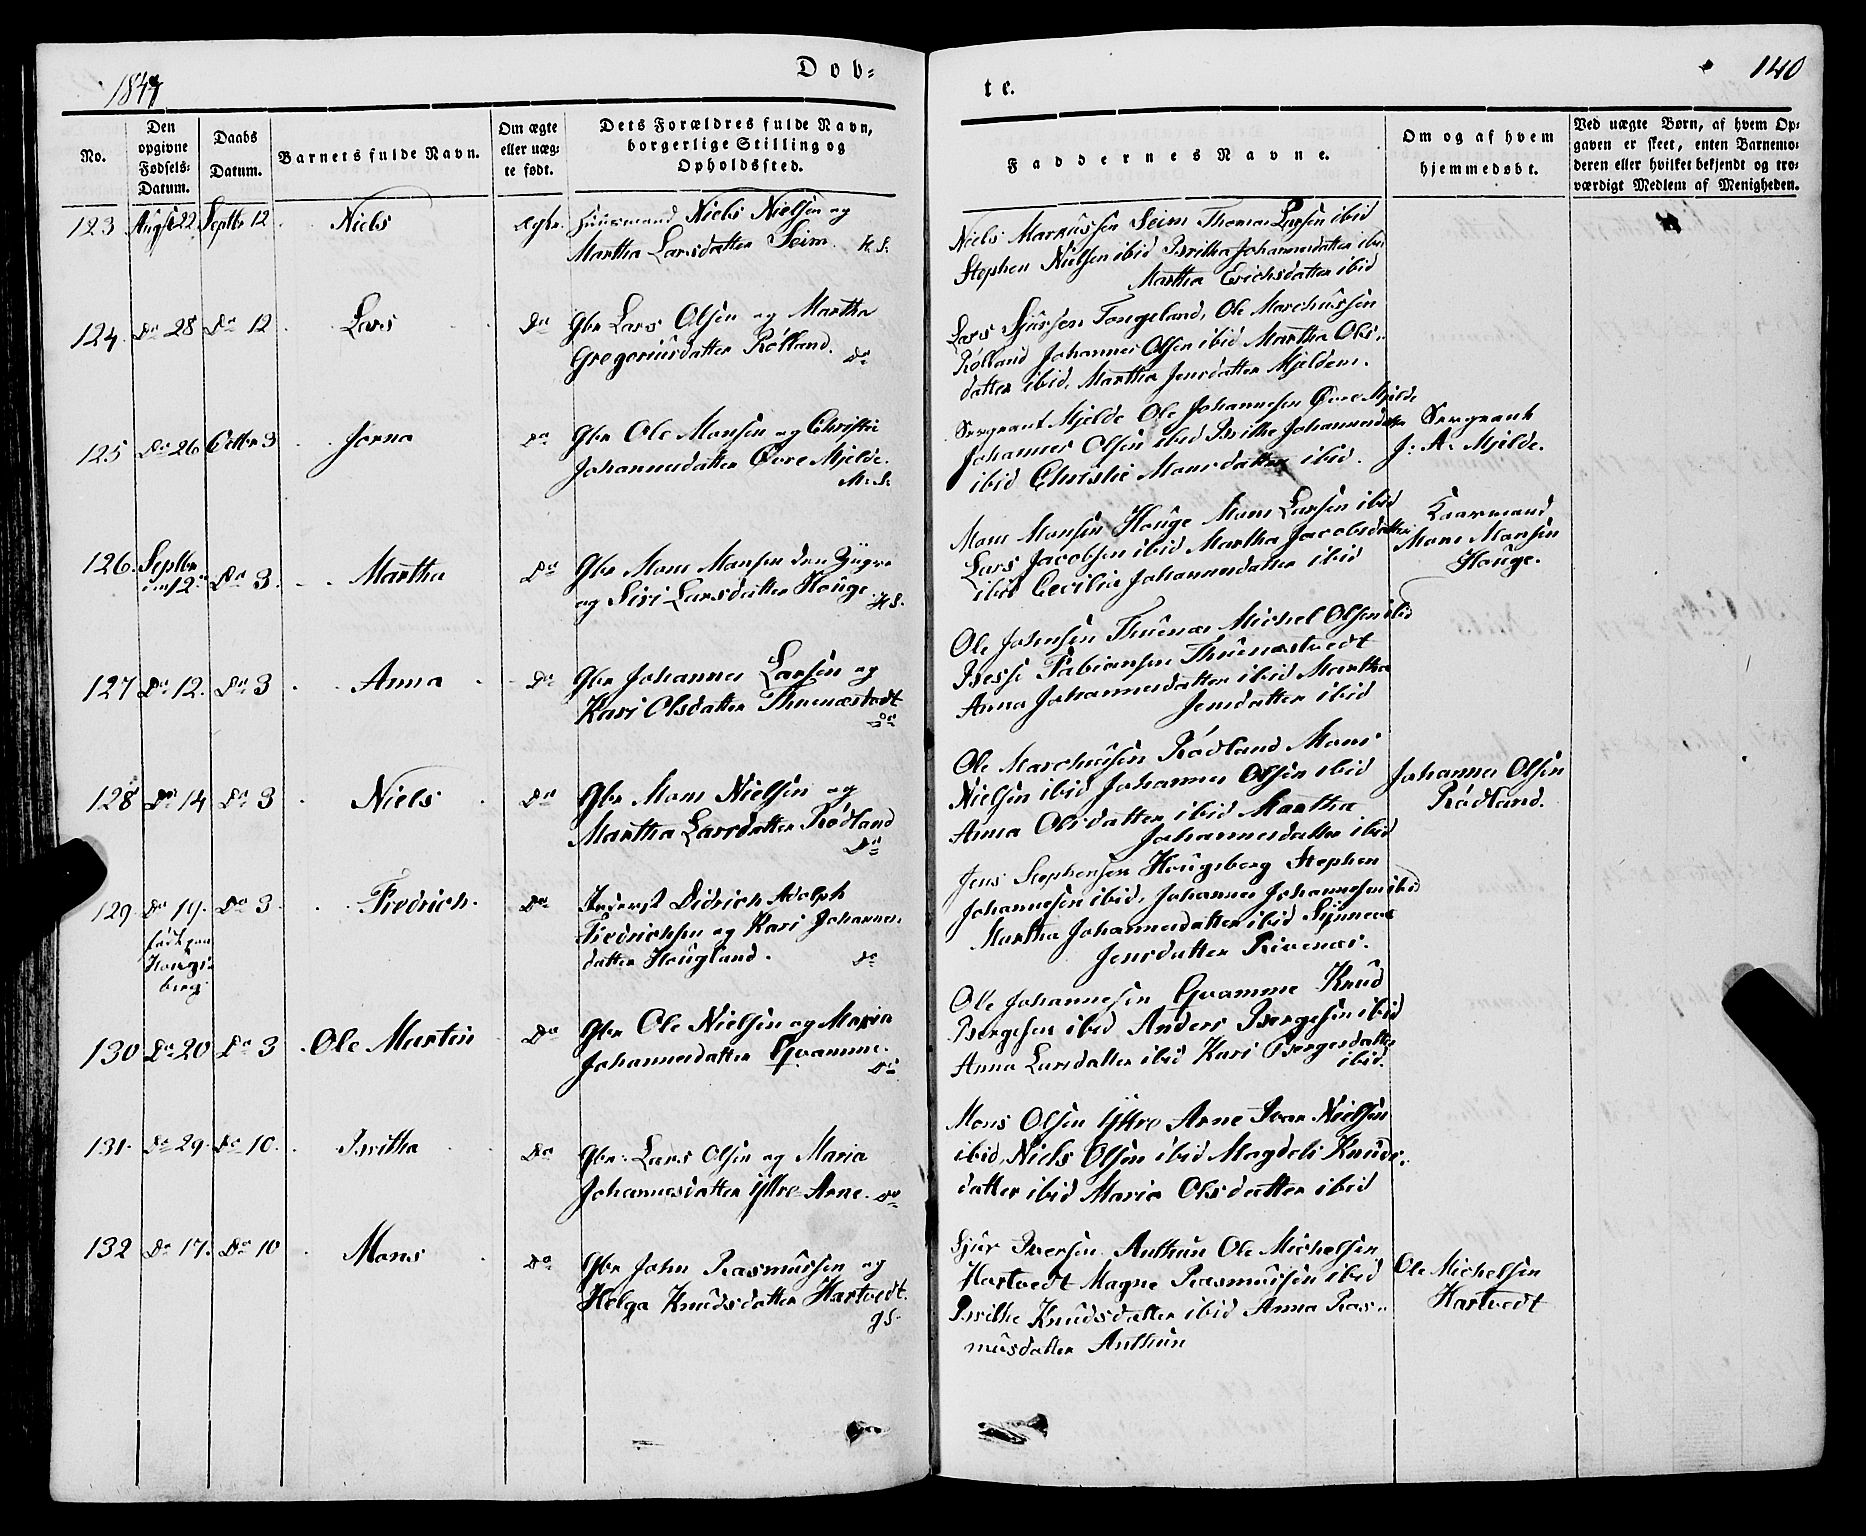 1847
Døb-
te.
140
No.
Den opgivne Fødsels-Datum.
Daabs Datum.
Barnets fulde Navn.
Om ægte eller uæg-te født.
Dets Forældres fulde Navn, borgerlige Stilling og Opholdssted.
Faddernes Navne.
Om og af hvem hjemmedøbt.
Ved uægte Børn, af hvem Op-gaven er skeet, enten Barnemo-deren eller hvilket bekjendt og tro-værdigt Medlem af Menigheden.
123 Augst 22 Septbr 12 Niels Ægte. Huusmand Niels Nielsen og
Martha Larsdatter Seim. H. S.
Niels Marcussen Seim Thomas Larsen ibid
Stephen Nielsen ibid Britha Johannesdatter ibid
Martha Erichsdatter ibid
124. Do 28 Do 12 Lars Do Gbr Lars Olsen og Martha
Gregoriusdatter Rølland. Do
Lars Sjursen Tongeland, Ole Marchussen
Rølland Johannes Olsen ibid Martha Ols-
datter ibid. Martha Jensdatter Mjeldem.
125 Do 26 Octbr 3 Jorna Do Gbr Ole Monsen og Christie
Johannesdatter Øvre Mjelde.
M. S.
Sergeant Mjelde Ole Johannesen Øvre Mjelde
Johannes Olsen ibid Brithe Johannesdatter
ibid Christie Monsdatter ibid.
Sergeant
J. A. Mjelde.
126. Septbr
12 Do 3. Martha Do Gbr Mons Monsen den Yngre
og Siri Larsdatter Houge. H S.
Mons Monsen Houge Mons Larsen ibid
Lars Jacobsen ibid Martha Jacobsdatter
ibid Cecilie Johannesdatter ibid
Kaarmand
Mons Monsen
Houge.
127 Do 12. Do 3 Anna Do Gbr Johannes Larsen og
Kari Olsdatter Thuenæstvedt
Do
Ole Johnsen Thuenæs Michel Olsen ibid
Besse Fabiansen Thuenæstvedt
Anna Johannesdatter ibid Martha
Jensdatter ibid
128 Do 14 Do 3 Niels Do Gbr Mons Nielsen og
Martha Larsdatter Rødland
Do
Ole Marchussen Rødland Mons
Nielsen ibid Johannes Olsen ibid
Anna Olsdatter ibid Martha
Johannesdatter ibid
Johannes Olsen
Rødland.
129. Do 19. Do 3 Fredrich. Do Inderst Didrich Adolph
født paa
Hougs-
berg
Fredrichsen og Kari Johannes-
datter Hougland. Do
Jens Stephensen Hougsberg Stephen
Johannesen ibid, Johannes Johannesen ibid
Martha Johannesdatter ibid Synneve
Jensdatter Rivenæs.
130 Do 20 Do 3 Ole Martin Do Gbr Ole Nielsen og Maria
Johannesdatter Qvamme.
Do
Ole Johannesen Qvamme Knud
Børgesen ibid Anders Børgesen ibid
Anna Larsdatter ibid Kari Børgesdatter
ibid.
131. Do 29. Do 10. Britha Do Gbr. Lars Olsen og Maria
Johannesdatter Yttre Arne. Do
Mons Olsen Yttre Arne Iver Nielsen
ibid, Niels Olsen ibid Magdeli Knuds-
datter ibid Maria Olsdatter ibid
132 Do 17. Do 10 Mons Do Gbr John Rasmussen og
Helga Knudsdatter Hartvedt.
g S.
Sjur Iversen Anthun Ole Michelsen
Hartvedt Magne Rasmussen ibid
Brithe Knudsdatter ibid Anna Ras-
musdatter Anthun
Ole Michelsen
Hartvedt